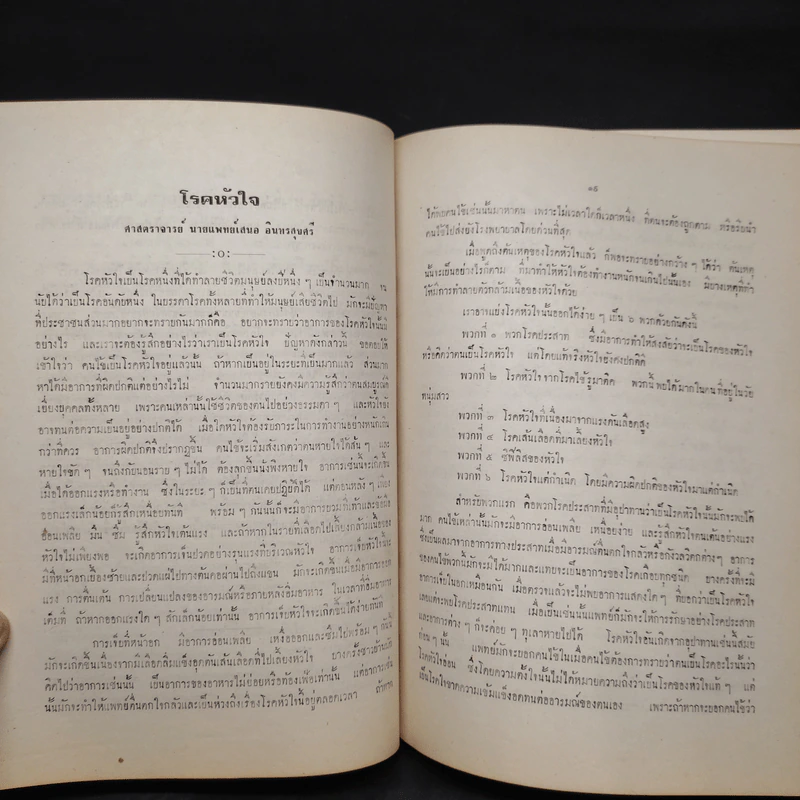 โรคหัวใจ
ศาสตราจารย์ นายแพทย์เสนอ อินทรสุขศรี
:o:
โรคหัวใจเป็นโรคหนึ่งที่ได้ทำลายชีวิตมนุษย์ลงปีหนึ่ง ๆ เป็นจำนวนมาก จน
นับได้ว่าเป็นโรคอันดับหนึ่ง ในบรรดาโรคทั้งหลายที่ทำให้มนุษย์เสียชีวิตไป มักจะมีปัญหา
ที่ประชาชนส่วนมากอยากจะทราบกันมากก็คือ อยากจะทราบว่าอาการของโรคหัวใจนั้นมี
อย่างไร และเราจะต้องรู้สึกอย่างไรว่าเราเป็นโรคหัวใจ ปัญหาดังกล่าวนี้ ขอตอบให้
เข้าใจว่า คนไข้เป็นโรคหัวใจอยู่แล้วนั้น ถ้าหากเป็นอยู่ในระยะที่เป็นมากแล้ว ส่วนมาก
หาได้มีอาการที่ผิดปกติแต่อย่างไรไม่ จำนวนมากรายยังคงมีความรู้สึกว่าตนสมบูรณ์ดี
เยี่ยงบุคคลทั้งหลาย เพราะคนเหล่านั้นใช้ชีวิตของตนไปอย่างธรรมดา ๆ และหัวใจยัง
อาจทนต่อความเป็นอยู่อย่างปกติได้ เมื่อใดหัวใจต้องรับภาระในการทำงานอย่างหนักเกิน
กว่าที่ควร อาการผิดปกติจึงปรากฏขึ้น คนไข้จะเริ่มสังเกตว่าตนหายใจได้สั้น ๆ และ
หายใจขัด ๆ จนถึงกับนอนราบ ๆ ไม่ได้ ต้องลุกขึ้นนั่งพิงหายใจ อาการเช่นนี้จะเกิดขึ้น
เมื่อได้ออกแรงหรือทำงาน ซึ่งในระยะ ๆ ก็เป็นที่ตนเคยปฏิบัติได้ แต่ตอนหลัง ๆ เมื่อ
ออกแรงเล็กน้อยก็รู้สึกเหนื่อยทันที พร้อม ๆ กันนั้นก็จะมีอาการบวมที่เท้าและข้อมือ
อ่อนเพลีย มึน ซึม รู้สึกหัวใจเต้นแรง และถ้าหากในรายที่เลือดไปเลี้ยงกล้ามเนื้อของ
หัวใจไม่เพียงพอ จะเกิดอาการเจ็บปวดอย่างรุนแรงที่บริเวณหัวใจ อาการเจ็บหัวใจนั้น
มีที่หน้าอกเยื้องซ้ายและปวดแผ่ไปทางต้นคอผ่านไปถึงแขน มักจะเกิดขึ้นเมื่อมีการออก
แรง การตื่นเต้น การเปลี่ยนแปลงของอารมณ์หรือภายหลังอิ่มอาหาร ในเวลาที่อิ่มอาหาร
เต็มที่ ถ้าหากออกแรงใด ๆ สักเล็กน้อยเท่านั้น อาการเจ็บหัวใจจะเกิดขึ้นได้ง่ายทันที
การเจ็บที่หน้าอก มีอาการอ่อนเพลีย เหงื่อออกและซึมไปพร้อม ๆ กันนี้
มักจะเกิดขึ้นเนื่องจากมีเลือดลิ่มแข็งอุดตันเส้นเลือดที่ไปเลี้ยงหัวใจ บางครั้งชาวบ้านมัก
คิดไปว่าอาการเช่นนั้น เป็นอาการของอาหารไม่ย่อยหรือท้องเฟ้อเท่านั้น แต่อาการเช่น
นั้นมักจะทำให้แพทย์ตื่นตกใจกลัวและเป็นห่วงถึงเรื่องโรคหัวใจนี้อยู่ตลอดเวลา ถ้าหาก
๑๕
ได้พบคนไข้เช่นนั้นมาหาตน เพราะไม่เวลาใดก็เวลาหนึ่ง ที่ตนจะต้องถูกตาม หรือรีบนำ
คนไข้ไปส่งยังโรงพยาบาลโดยด่วนที่สุด
เมื่อพูดถึงต้นเหตุของโรคหัวใจแล้ว ก็พอจะทราบอย่างกว้าง ๆ ได้ว่า ต้นเหตุ
นั้นจะเป็นอย่างไรก็ตาม ที่มาทำให้หัวใจต้องทำงานหนักจนเกินไปนั้นเอง มีบางเหตุที่ทำ
ให้มีการทำลายตัวกล้ามเนื้อของหัวใจด้วย
เราอาจแบ่งโรคหัวใจนั้นออกได้ง่าย ๆ เป็น ๖ พวกด้วยกันดังนี้
พวกที่ ๑ พวกโรคประสาท ซึ่งมีอาการทำให้สงสัยว่าจะเป็นโรคของหัวใจ
หรือคิดว่าตนเป็นโรคหัวใจ แต่โดยแท้จริงหัวใจยังคงปกติดี
พวกที่ ๒ โรคหัวใจจากโรคไข้รูมาติค พวกนี้พบได้มากในคนที่อยู่ในวัย
หนุ่มสาว
พวกที่ ๓ โรคหัวใจที่เนื่องมาจากแรงดันเลือดสูง
พวกที่ ๔ โรคเส้นเลือดที่มาเลี้ยงหัวใจ
พวกที่ ๕ ซิฟิลิสของหัวใจ
พวกที่ ๖ โรคหัวใจแต่กำเนิด โดยมีความผิดปกติของหัวใจมาแต่กำเนิด
สำหรับพวกแรก คือพวกโรคประสาทที่มีอุปาทานว่าเป็นโรคหัวใจนั้นมักจะพบได้
มาก คนไข้เหล่านั้นมักจะมีอาการอ่อนเพลีย เหนื่อยง่าย และรู้สึกหัวใจตนเต้นอย่างแรง
ซึ่งเป็นผลมาจากอาการทางประสาทเมื่อมีอารมณ์ตื่นตกใจกลัวหรือกังวลวิตกต่างๆ อาการ
ของคนไข้พวกนี้มักจะมีได้มากและแทบจะเป็นอาการของโรคเกือบทุกชนิด บางครั้งก็จะมี
อาการเจ็บในอกเหมือนกัน เมื่อตรวจแล้วจะไม่พบอาการแสดงใด ๆ ที่บอกว่าเป็นโรคหัวใจ
เลยแต่จะพบโรคประสาทแทน เมื่อเป็นเช่นนั้นแพทย์ก็มักจะให้การรักษาอย่างโรคประสาท
และอาการต่าง ๆ ก็จะค่อย ๆ ทุเลาหายไปได้ โรคหัวใจอันเกิดจากอุปาทานเช่นนี้สมัย
ก่อน ๆ นั้น แพทย์มักจะบอกคนไข้ในเมื่อคนไข้ต้องการทราบว่าตนเป็นโรคอะไรนั้นว่า
โรคหัวใจอ่อน ซึ่งโดยความตั้งใจนั้นไม่ได้หมายความถึงว่าเป็นโรคของหัวใจแท้ ๆ แต่
เป็นโรคขาดความเข้มแข็งอดทนต่ออารมณ์ของตนเอง เพราะถ้าหากจะบอกคนไข้ว่า